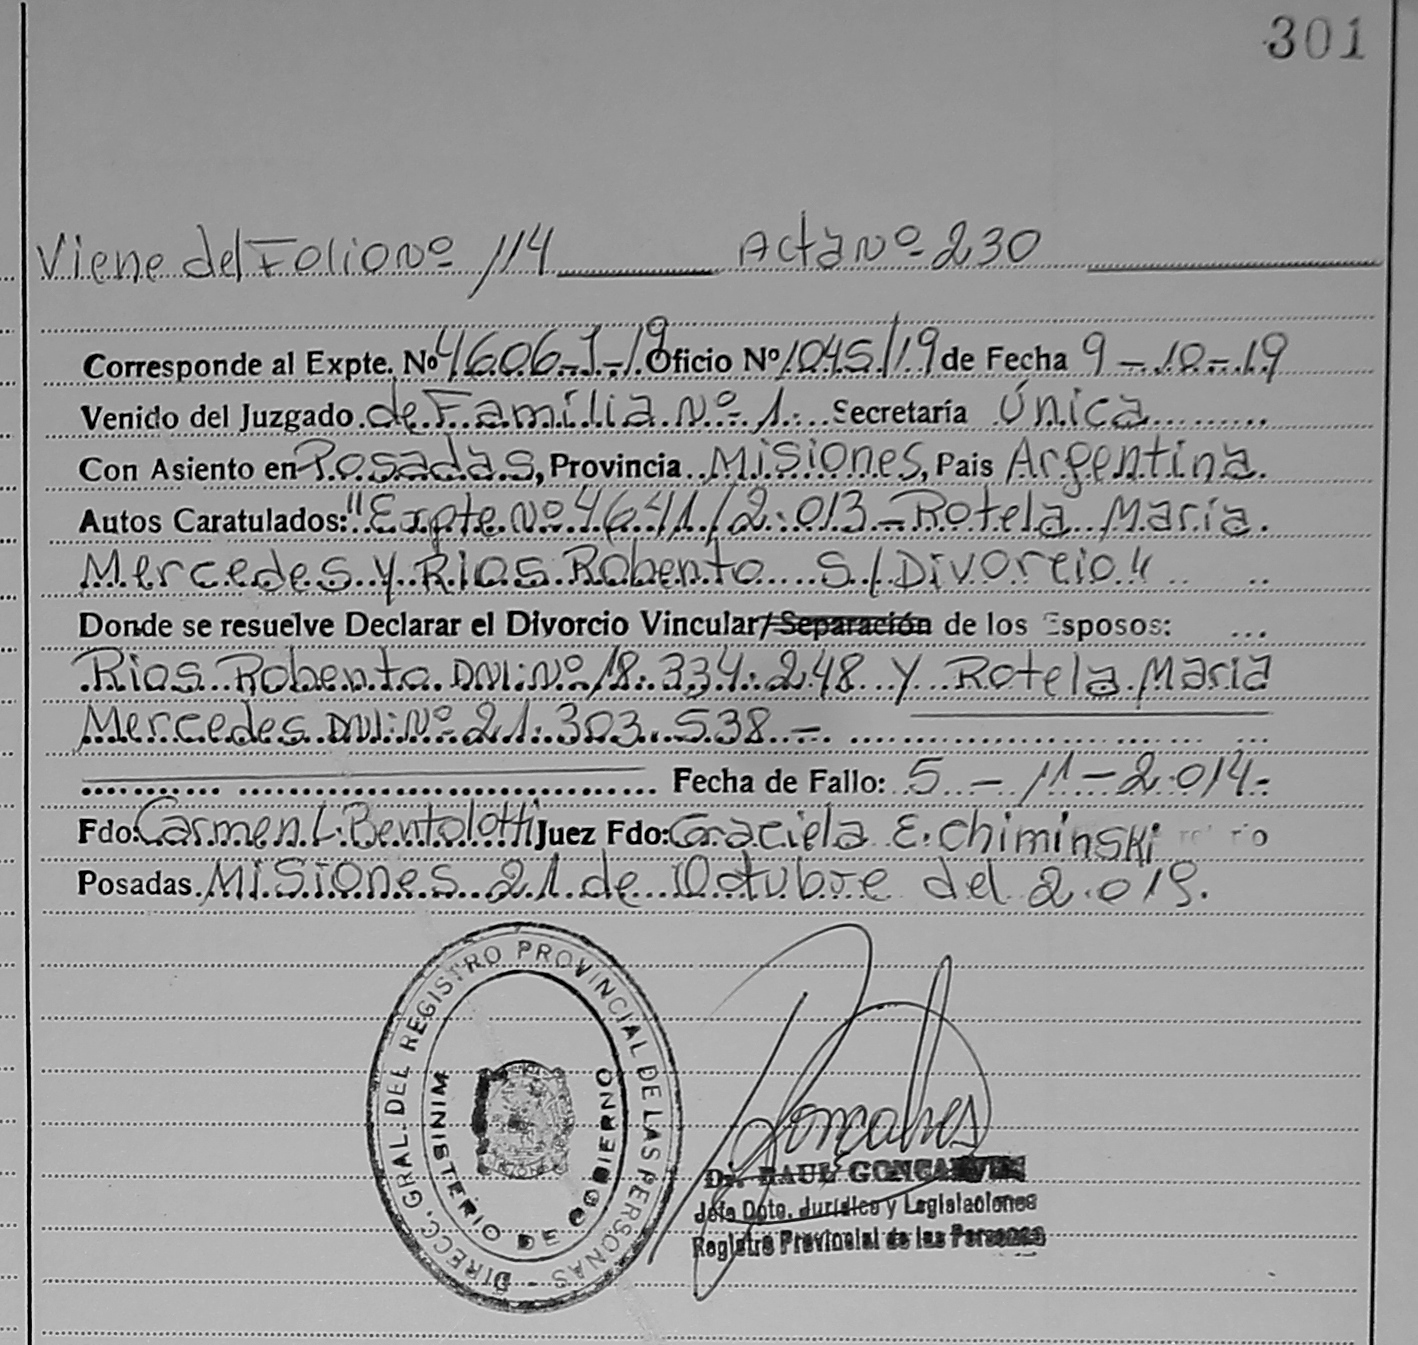 301
Viene del Folio Nº 114 Acta Nº 230
Corresponde al Expte. Nº 4606-J-19 Oficio Nº 1045/19 de Fecha 9-10-19
Venido del Juzgado de Familia Nº 1. Secretaría Única
Con Asiento en Posadas, Provincia Misiones, Pais Argentina.
Autos Caratulados: "Expte. Nº 4641/2.013 - Rotela Maria
Mercedes y Rios Robento S/Divorcio"
Donde se resuelve Declarar el Divorcio Vincular/Separación de los Esposos:
Rios Robento DNI: Nº 18.334.248 y Rotela Maria
Mercedes DNI: Nº 21.303.538.-
Fecha de Fallo: 5-11-2.014-
Fdo: Carmen L. Bentolotti Juez Fdo: Graciela E. Chiminski
Posadas Misiones 21 de Octubre del 2.019.
DIRECC. GRAL. DEL REGISTRO PROVINCIAL DE LAS PERSONAS -
MINISTERIO DE GOBIERNO
Goncalves
Dr. RAUL GONCALVES
Jefe Dpto. Jurídico y Legislaciones
Registro Provincial de las Personas